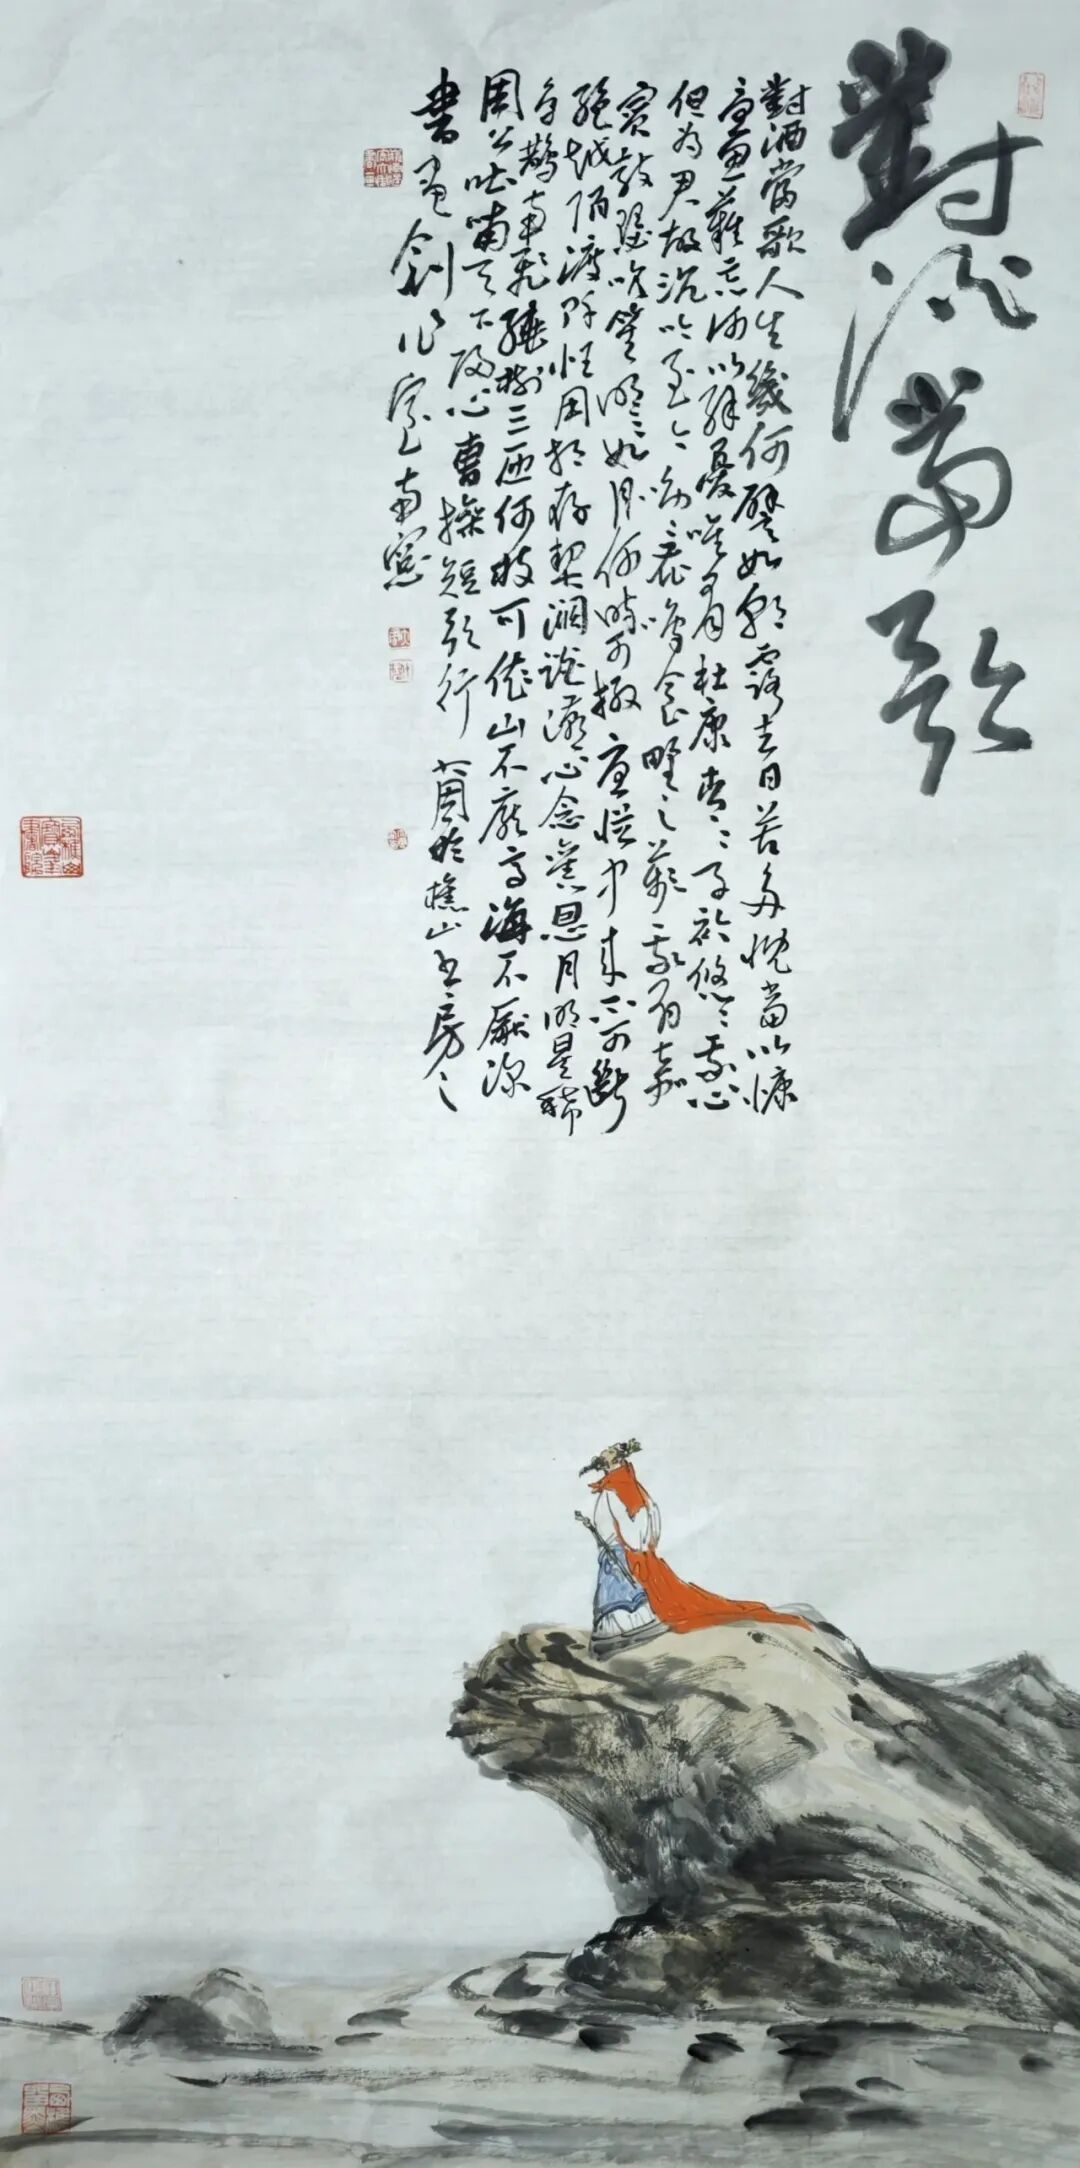 對酒當歌
對酒當歌人生幾何譬如朝露去日苦多慨當以慷
思難忘何以解憂唯有杜康青〻子衿悠〻我心
但為君故沉吟至今呦〻鹿鳴食野之蘋我有嘉
賓鼓瑟吹笙明〻如月何時可掇憂從中來不可斷
絕越陌渡阡枉用相存契闊談讌心念舊恩月明星稀
烏鵲南飛繞樹三匝何枝可依山不厭高海不厭深
周公吐哺天下歸心曹操短歌行 於樵山書房之
書畫創作室南窗